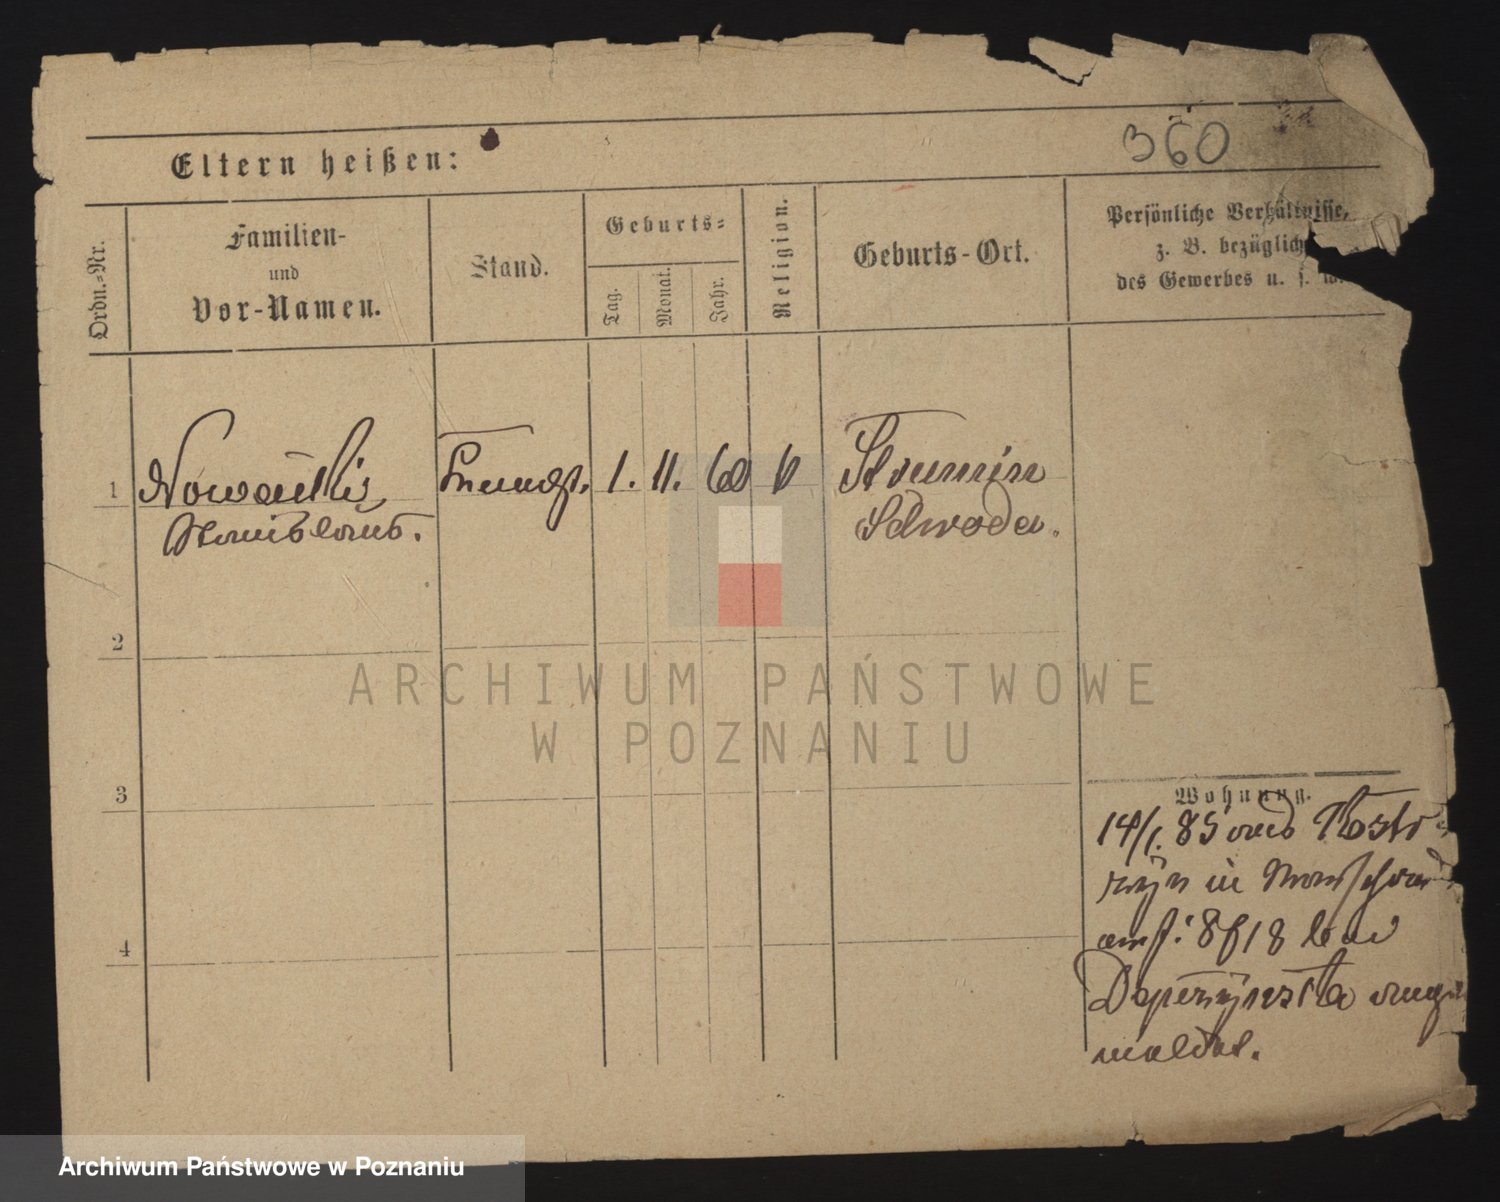 360
Eltern heißen:
Ordn.-Nr.
Familien-
und
Vor-Namen.
Stand.
Geburts-
Tag.
Monat.
Jahr.
Religion.
Geburts-Ort.
Persönliche Verhältnisse,
z. B. bezüglich
des Gewerbes u. s. w.
1
1. 11. 60
Strumin
Schroda.
2
3
4
Wohnung.
14/1. 85 aus Kostr
zyn in
8/18 bei
meldet.
ARCHIWUM PAŃSTWOWE
W POZNANIU
Archiwum Państwowe w Poznaniu